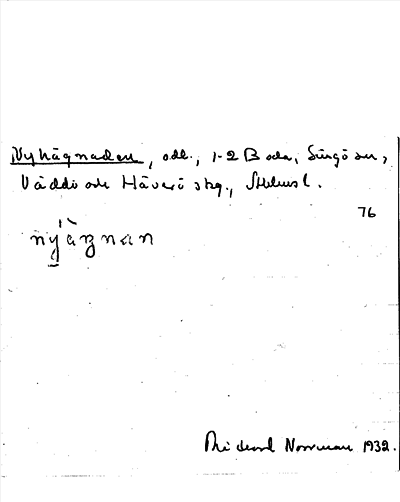 Nyhägnaden, odl., 1-2 Boda, Singö sn,
Väddö och Häverö skg., Sthlms l.
76
nyàgnan
Rickard Norrman 1932.